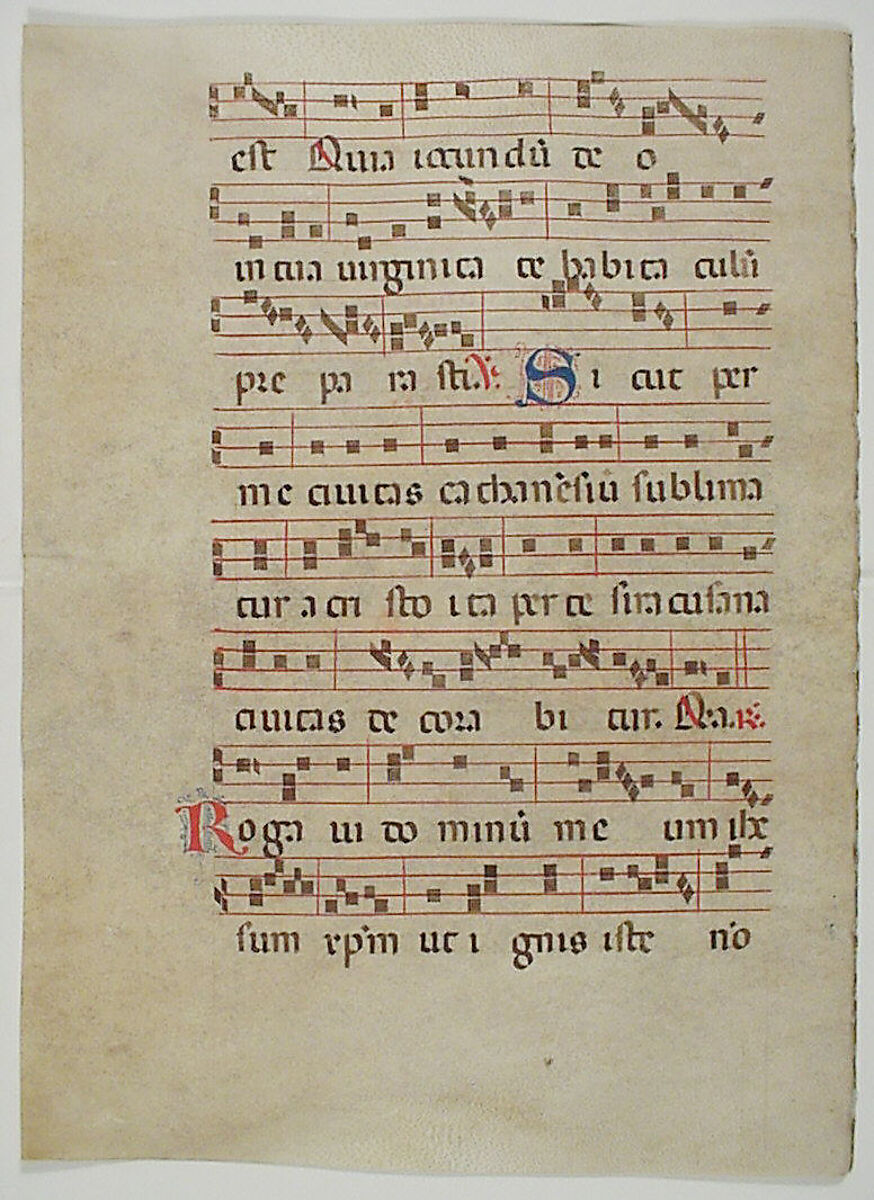 est Quia iocundū de o
in tua uirginita te habita culū
pre pa ra sti ℣. Si cut per
me ciuitas cathanēsiū sublima
tur a cri sto ita per te siracusana
ciuitas de cora bi tur. Q̇a. ℟.
Roga ui do minū me um ihx
sum xp̄m ut i gnis iste no